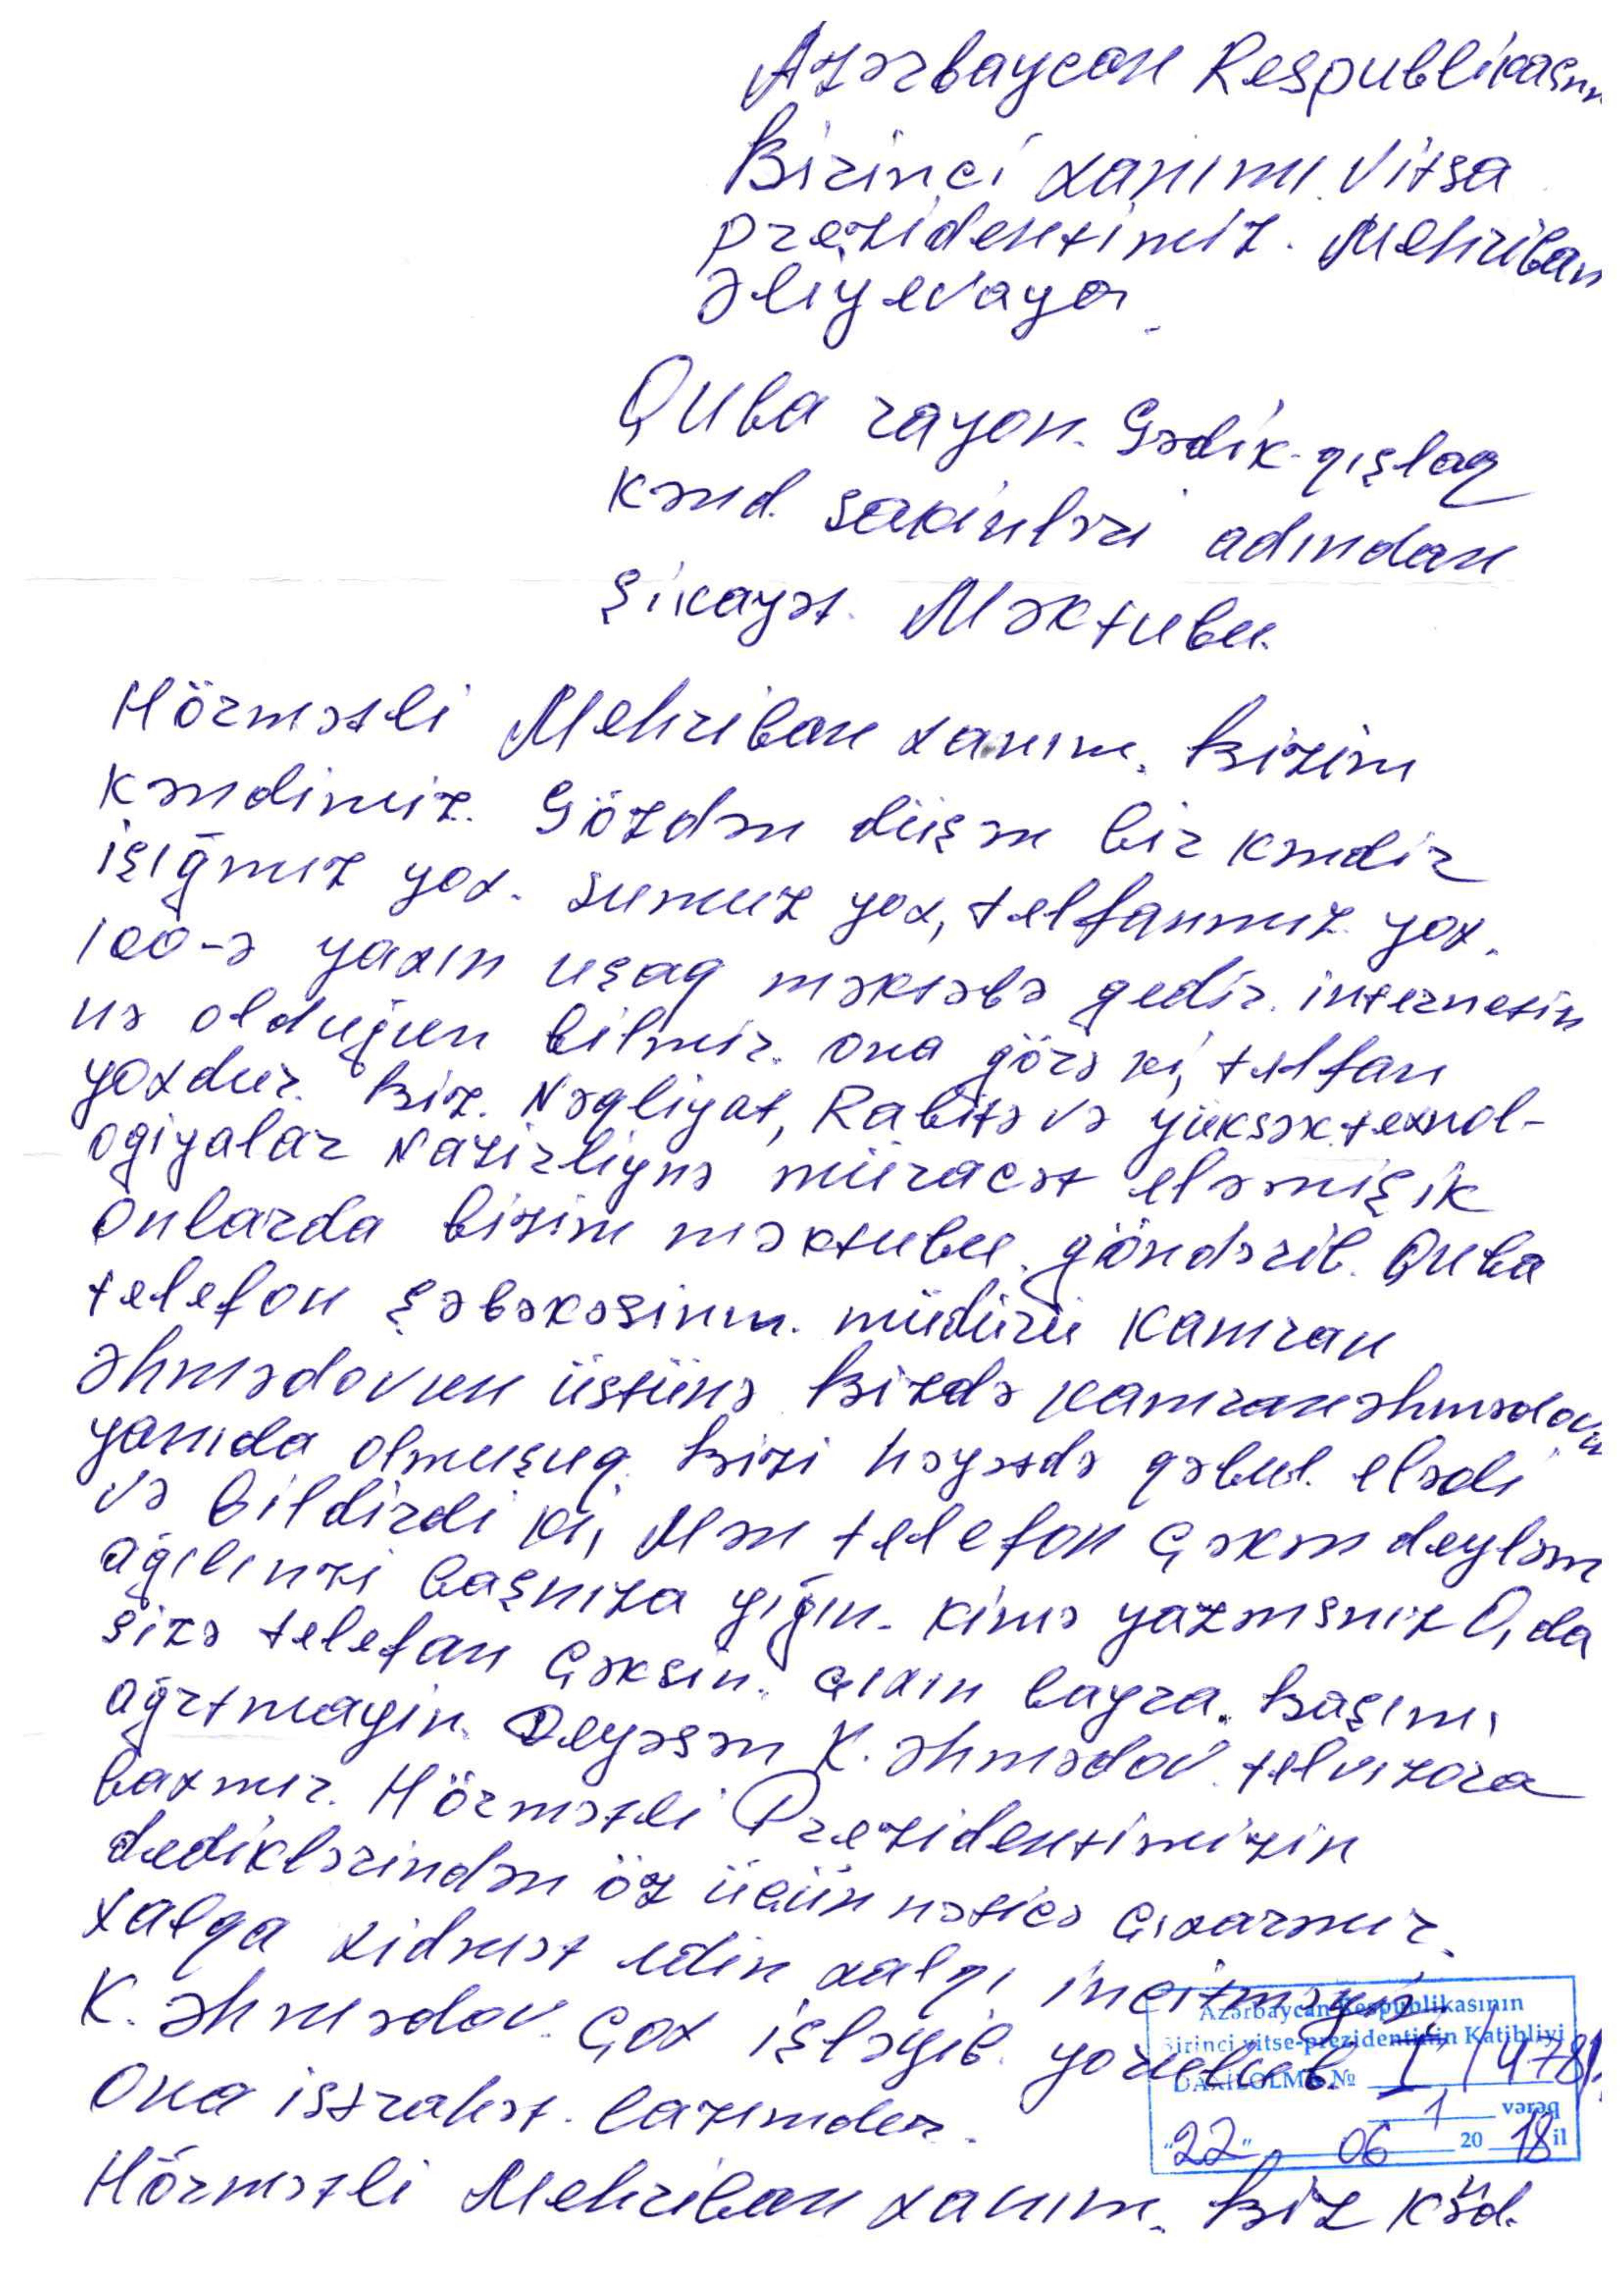 Azərbaycan Respublikasını
Birinci xanımı Vitsa
prezidentimiz. Mehriban
Əliyevaya
Quba rayon. Gədik-qışlaq
kənd. sakinləri adından
Şikayət. Məktubu.
Hörmətli Mehriban xanım. Bizim
kəndimiz. Gözdən düşən bir kəndir
işığmız yox. sumuz yox, telfanmız yox.
100-ə yaxın uşaq məktəbə gedir. internetin
nə olduğun bilmir. ona görə ki, telfan
yoxdur. Biz. Nəqliyat, Rabitə və yüksək texnol-
ogiyalar Nazirliynə müracət eləmişik
Onlarda bizim məktubu. göndərib. Quba
telefon şəbəkəsinın. müdürü Kamran
Əhmədovun üstünə Bizdə Kamran əhmədovun
yanıda olmuşuq. Bizi həyətdə qəbul. elədi
və bildirdi ki, Mən telefon çəkən deyləm
ağılınzi başnıza yığın. kimə yazmsnız O, da
sizə telefan çəksin. çıxın bayra. Başımı
ağrtmayin. Deyəsən K. Əhmədov. telvizora
baxmır. Hörmətli Prezidentimizin
dediklərindən öz üçün nəticə çıxarmır.
xalqa xidmət edin xalqı incitməyin
K. Əhmədov. çox işləyib. yorulub.
Ona istrahət. lazımdır.
Azərbaycan Respublikasının
Birinci vitse-prezidentinin Katibliyi
DAXİLOLMA №
1 vərəq
"22" 06 2018 il
Hörmətli Mehriban xanım. Biz kənd.